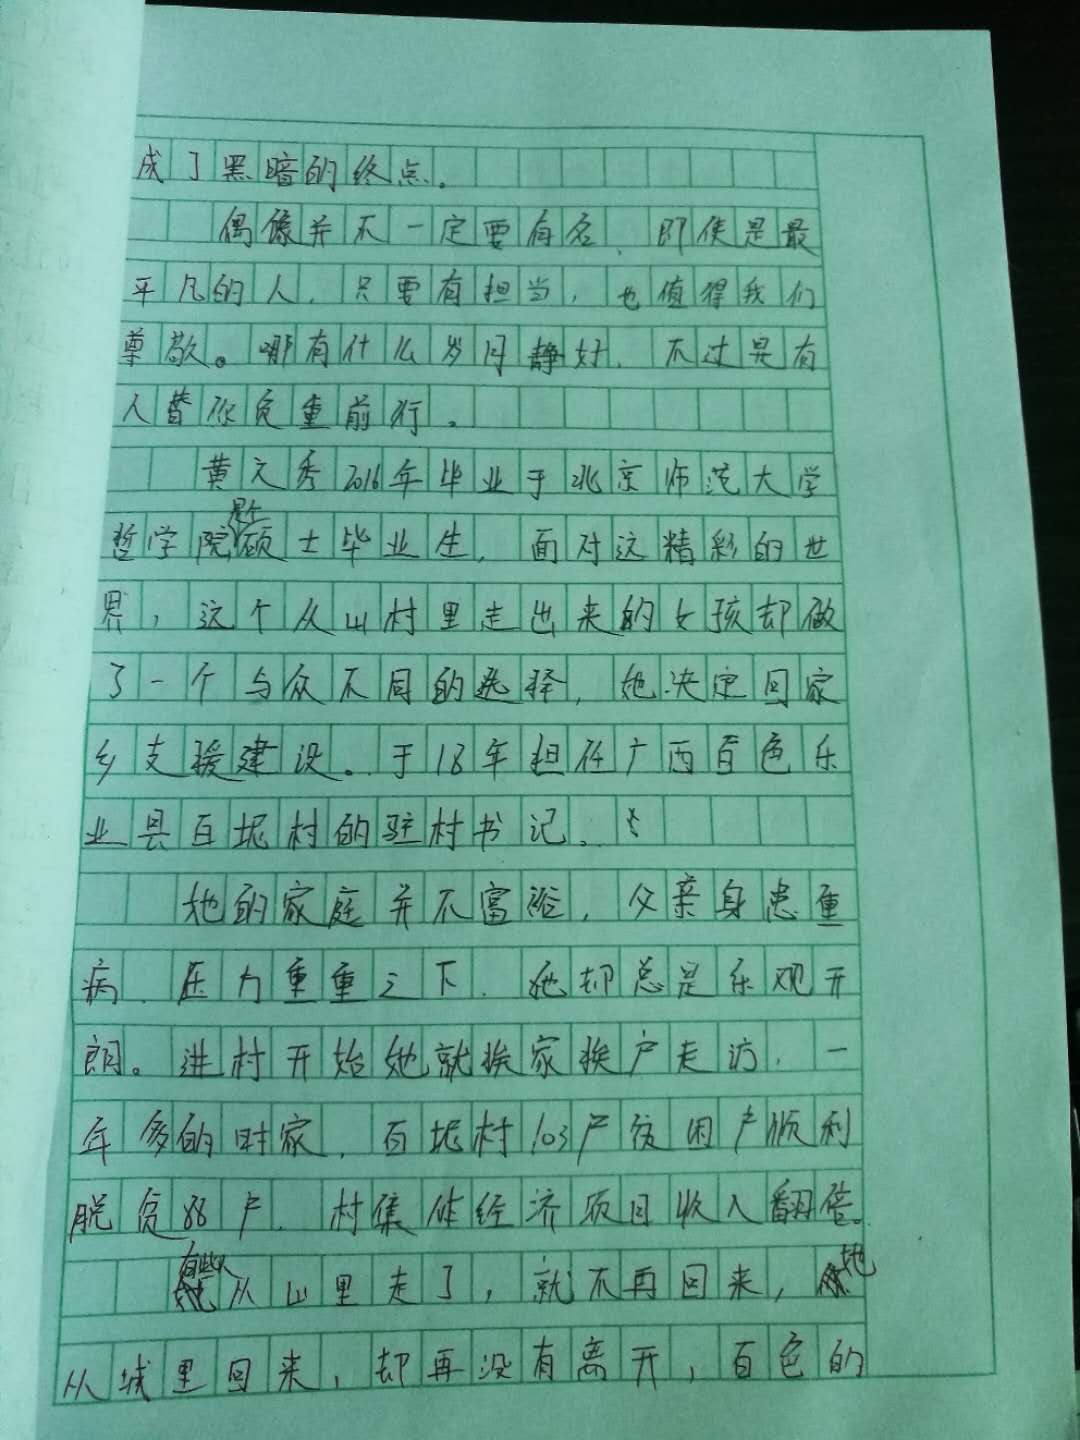 成了黑暗的终点。
偶像并不一定要有名，即使是最
平凡的人，只要有担当，也值得我们
尊敬。哪有什么岁月静好，不过是有
人替你负重前行。
黄文秀2016年毕业于北京师范大学
哲学院是个硕士毕业生，面对这精彩的世
界，这个从山村里走出来的女孩却做
了一个与众不同的选择，她决定回家
乡支援建设。于18年担任广西百色乐
业县百坭村的驻村书记。
她的家庭并不富裕，父亲身患重
病，压力重重之下，她却总是乐观开
朗。进村开始她就挨家挨户走访，一
年多的时家，百坭村103户贫困户顺利
脱贫88户，村集体经济项目收入翻倍。
有些人从山里走了，就不再回来，她
从城里回来，却再没有离开，百色的